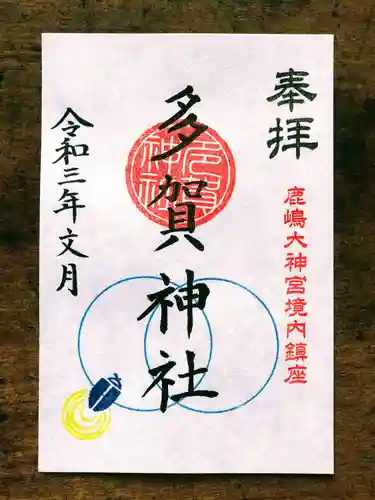 奉拝
鹿嶋大神宮境内鎮座
多賀神社
令和三年文月